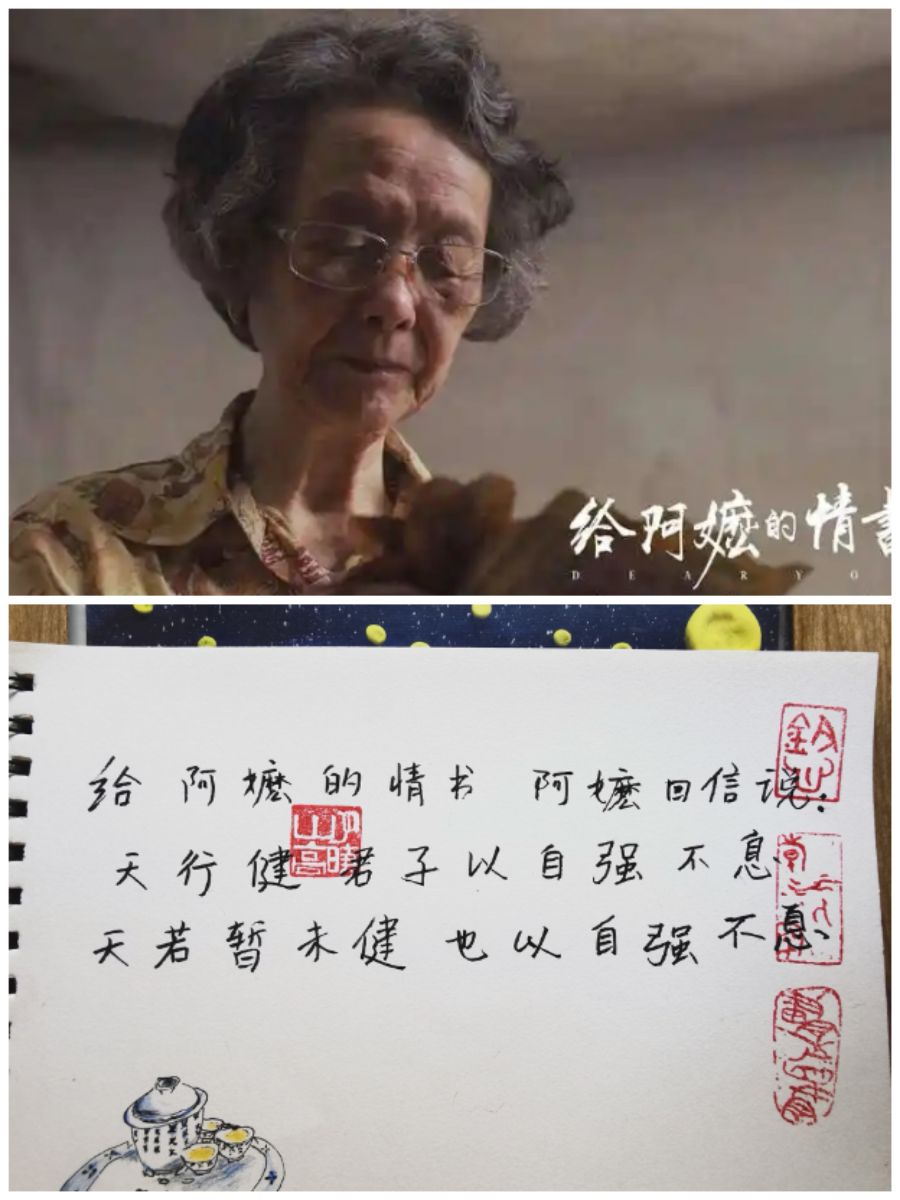 给阿嬷的情
DEARYO
给阿嬷的情书 阿嬷回信说:
天行健 君子以自强不息、
天若暂未健 也以自强不息、